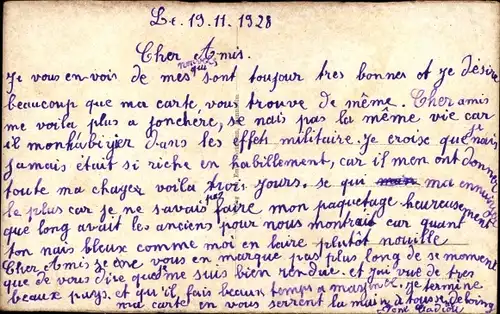 Le. 19.11.1928
Cher Amis.
Je vous en vois de mes nouvelles qui sont toujour tres bonnes et je désire
beaucoup que ma carte, vous trouve de même. Cher amis
me voila plus a jonchere, se nais pas la même vie car
il mon habiyer dans les effets militaire. Je croix que je nais
Jamais était si riche en habillement, car il men ont donner
toute ma chayer voila trois jours. se qui ma ennuyer
le plus car je ne savais pas faire mon paquetage heureusement
que long avait les anciens pour nous montrait car quant
ton nais bleux comme moi en laire plutôt nouille
Cher Amis je vous en marque pas plus long de se moment
que de vous dire que me suis bien rendue. et jai vue de tres
beaux pays. et qu'il fais beaux temps a mayence. je termine
ma carte en vous serrent la main a tousse de loing